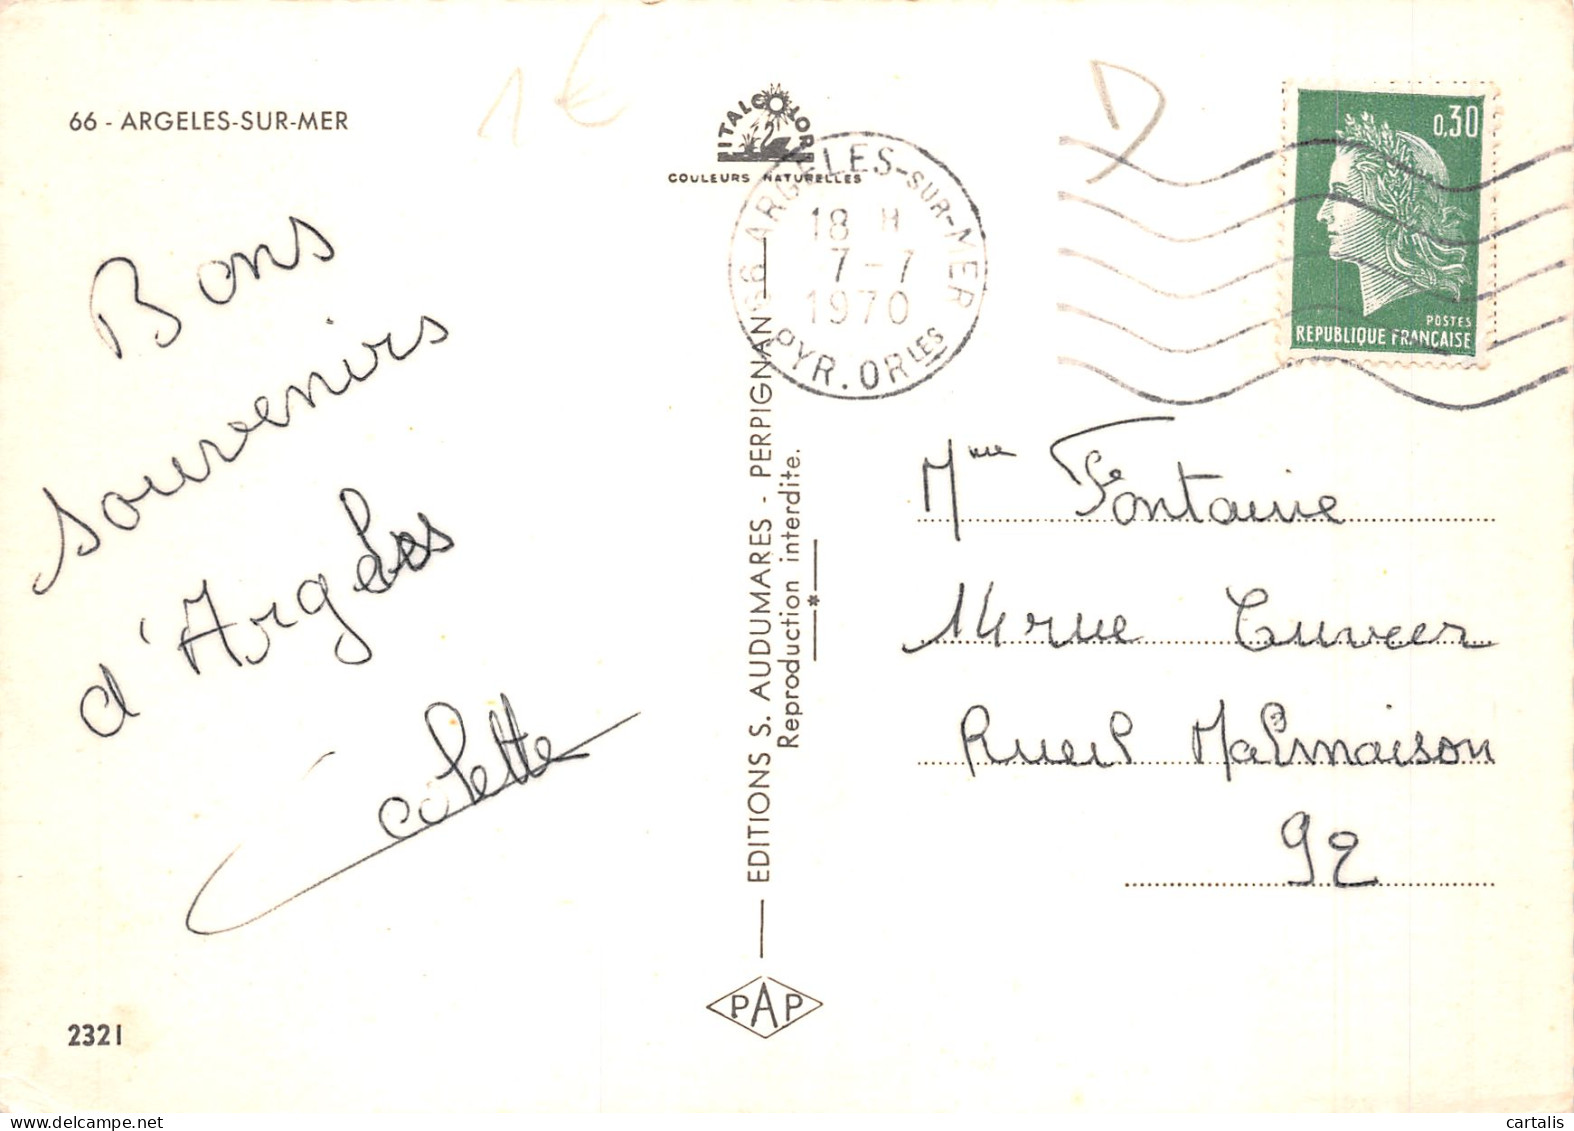 66 - ARGELES-SUR-MER
1€
D
ITALCOLOR
COULEURS NATURELLES
66 ARGELES-SUR-MER
18 H
7-7
1970
PYR. ORLES
0,30
POSTES
REPUBLIQUE FRANÇAISE
Bons
souvenirs
d'Argelès
Colette
EDITIONS S. AUDUMARES - PERPIGNAN
Reproduction interdite.
*
Mme Fontaine
14 rue Cuvier
Rueil Malmaison
92
PAP
2321
cartalis